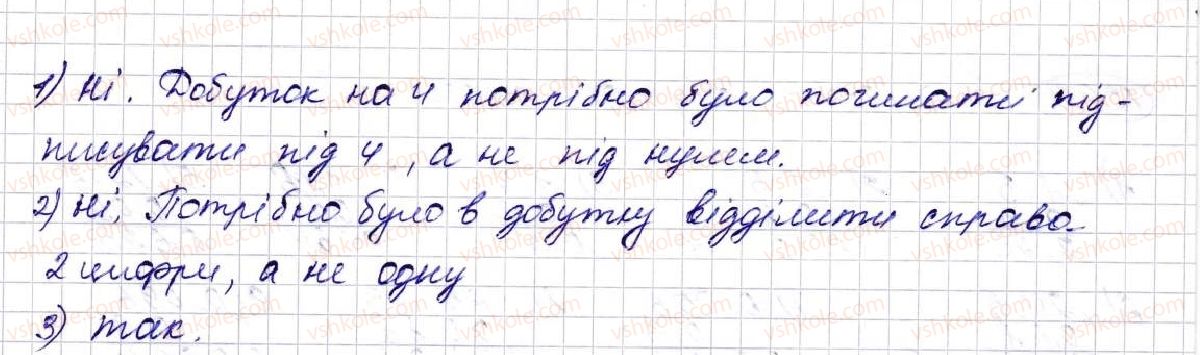 1) Ні. Добуток на 4 потрібно було починати під-
писувати під 4, а не під нулем.
2) Ні. Потрібно було в добутку відділити справа
2 цифри, а не одну
3) Так.